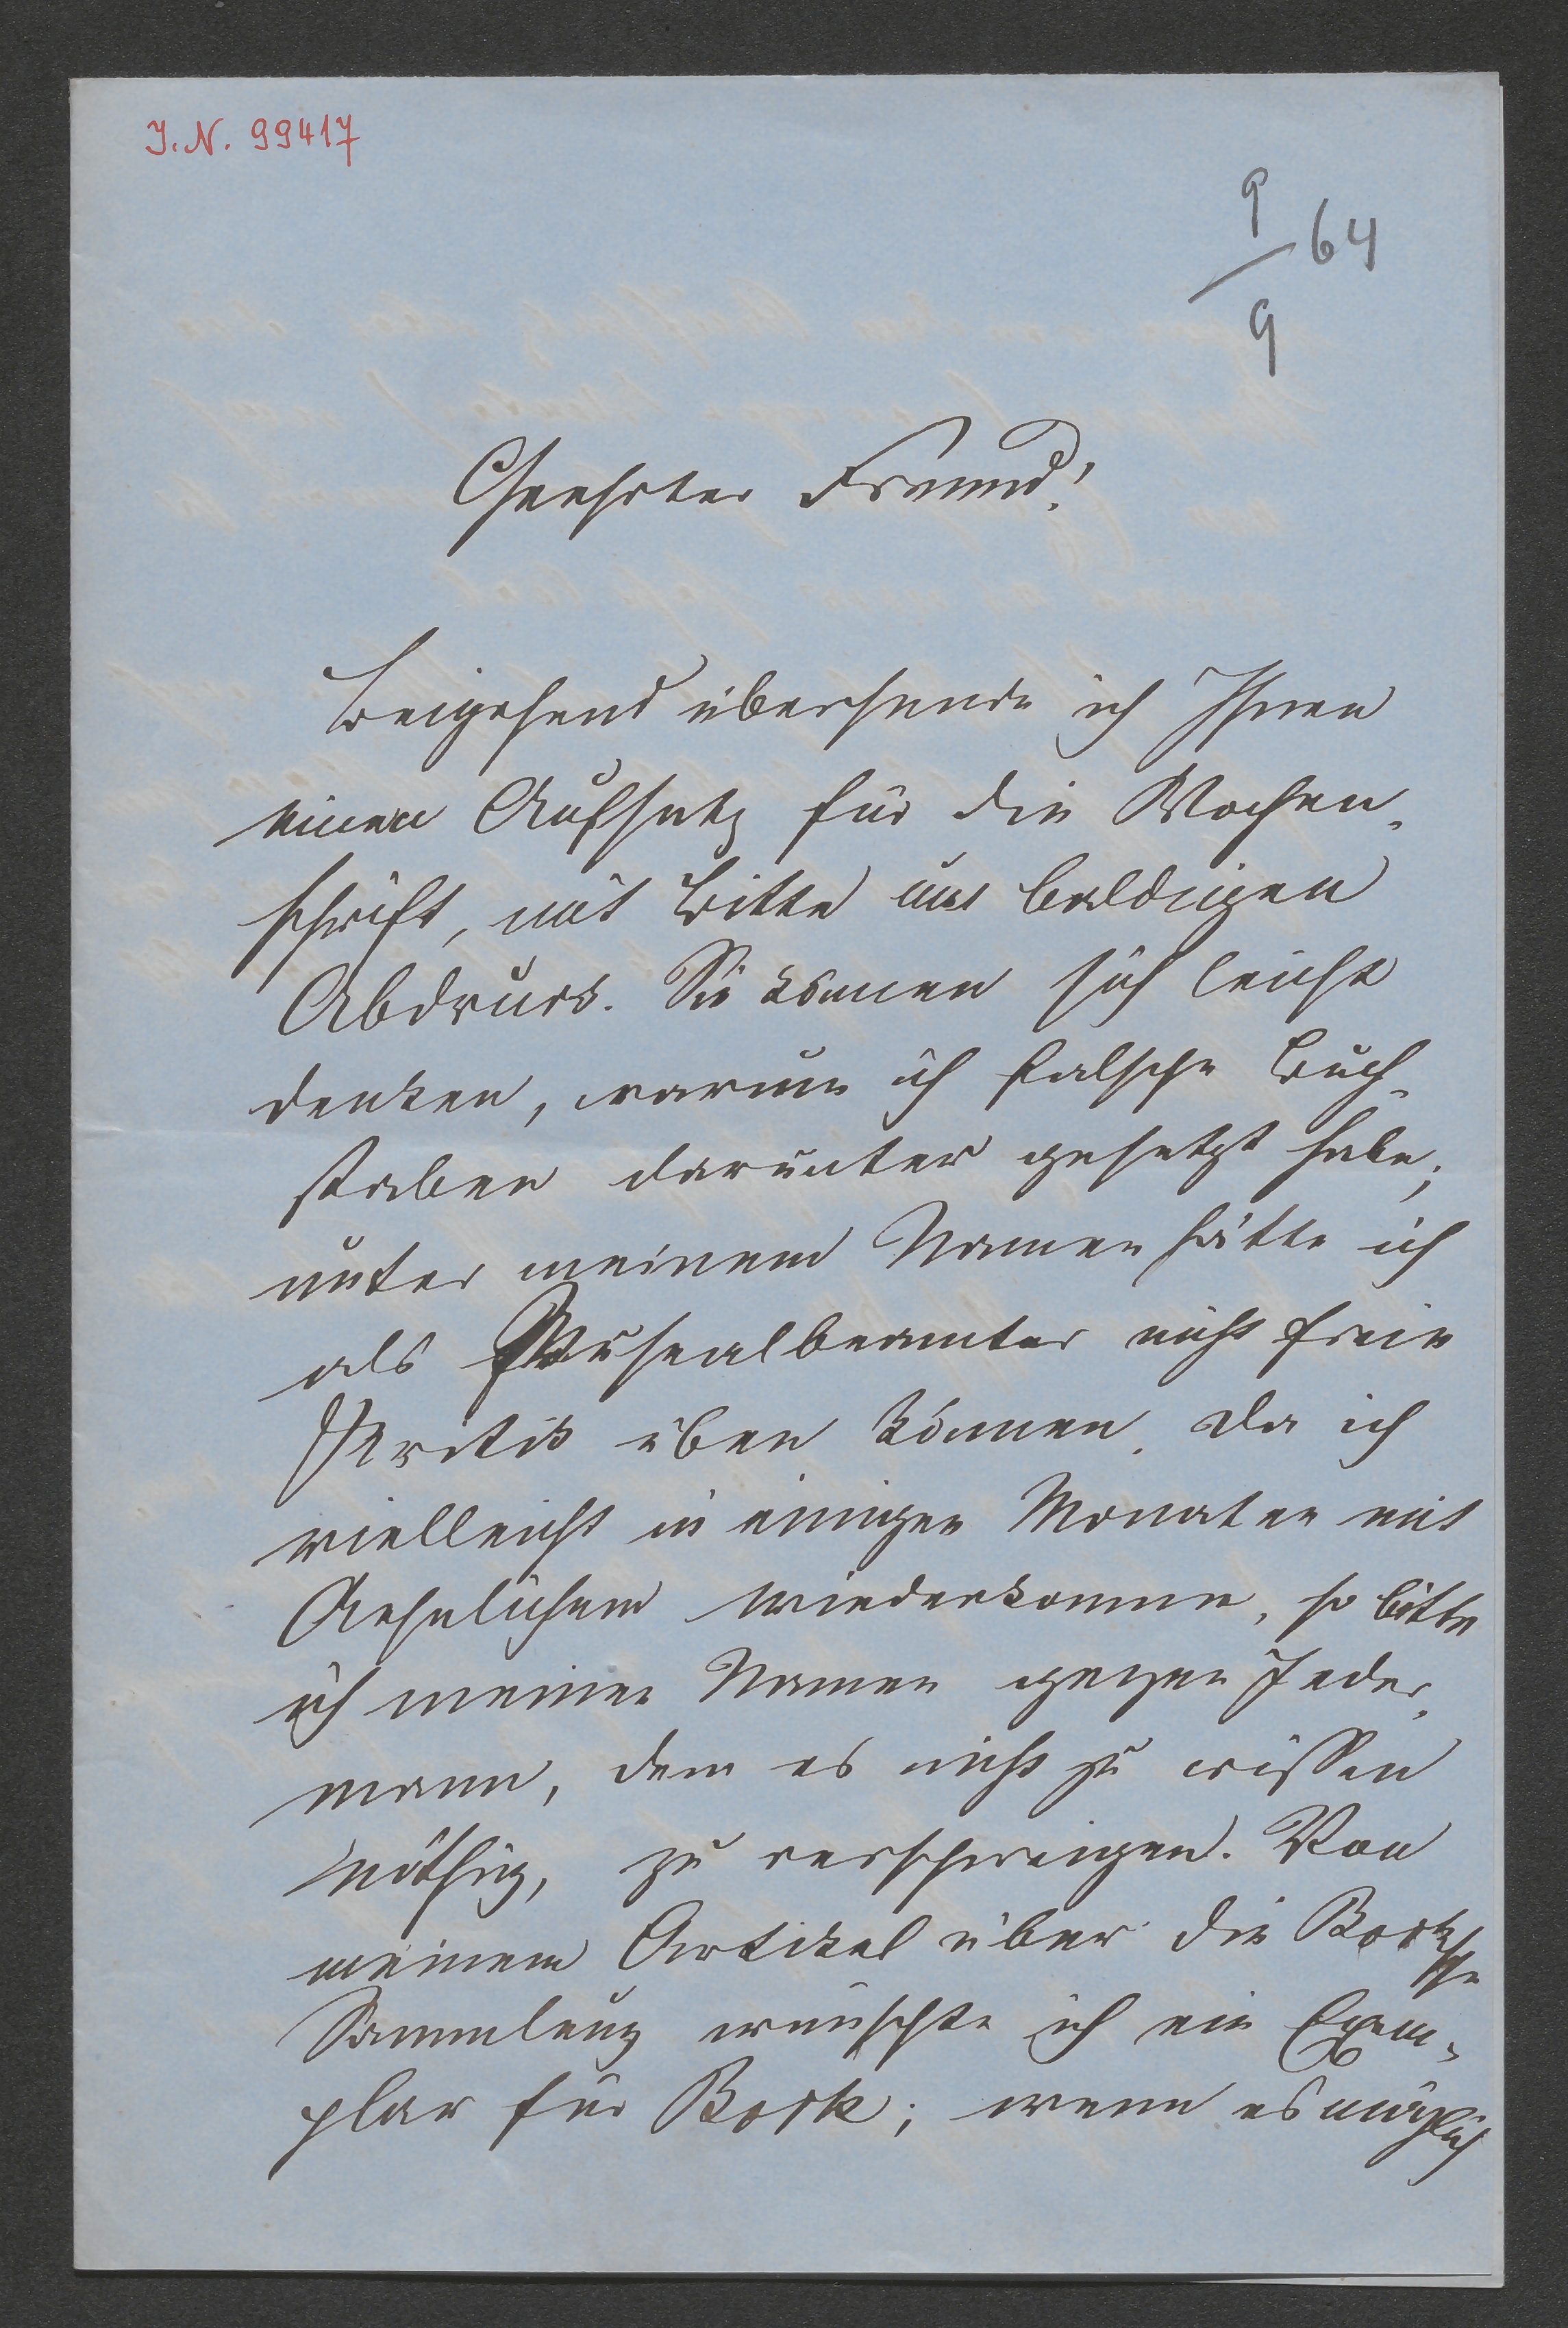 J. N. 99417
9/9 64
Geehrter Freund!
Beigehend übersende ich Ihnen
einen Aufsatz für die Wochen-
schrift, mit Bitte um baldigen
Abdruck. Sie können sich leicht
denken, warum ich falsche Buch-
staben darunter gesetzt habe;
unter meinem Namen hätte ich
als Musealbeamter nicht freie
Kritik üben können. Da ich
vielleicht in einigen Monaten mit
Aehnlichem wiederkomme, so bitte
ich meinen Namen gegen Jeder-
mann, dem es nicht zu wissen
nöthig, zu verschweigen. Von
meinem Artikel über die Bocksche
Sammlung wünschte ich ein Exem-
plar für Bock; wenn es möglich